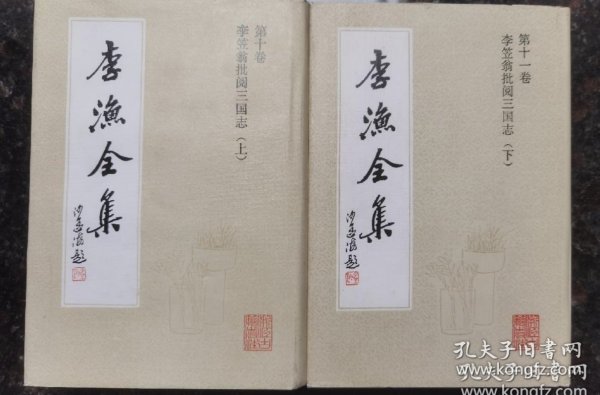 第十卷
李笠翁批阅三国志（上）
李漁全集
沙孟海题
第十一卷
李笠翁批阅三国志（下）
李漁全集
沙孟海题
孔夫子旧书网
www.kongfz.com
孔夫子旧书网
www.kongfz.com